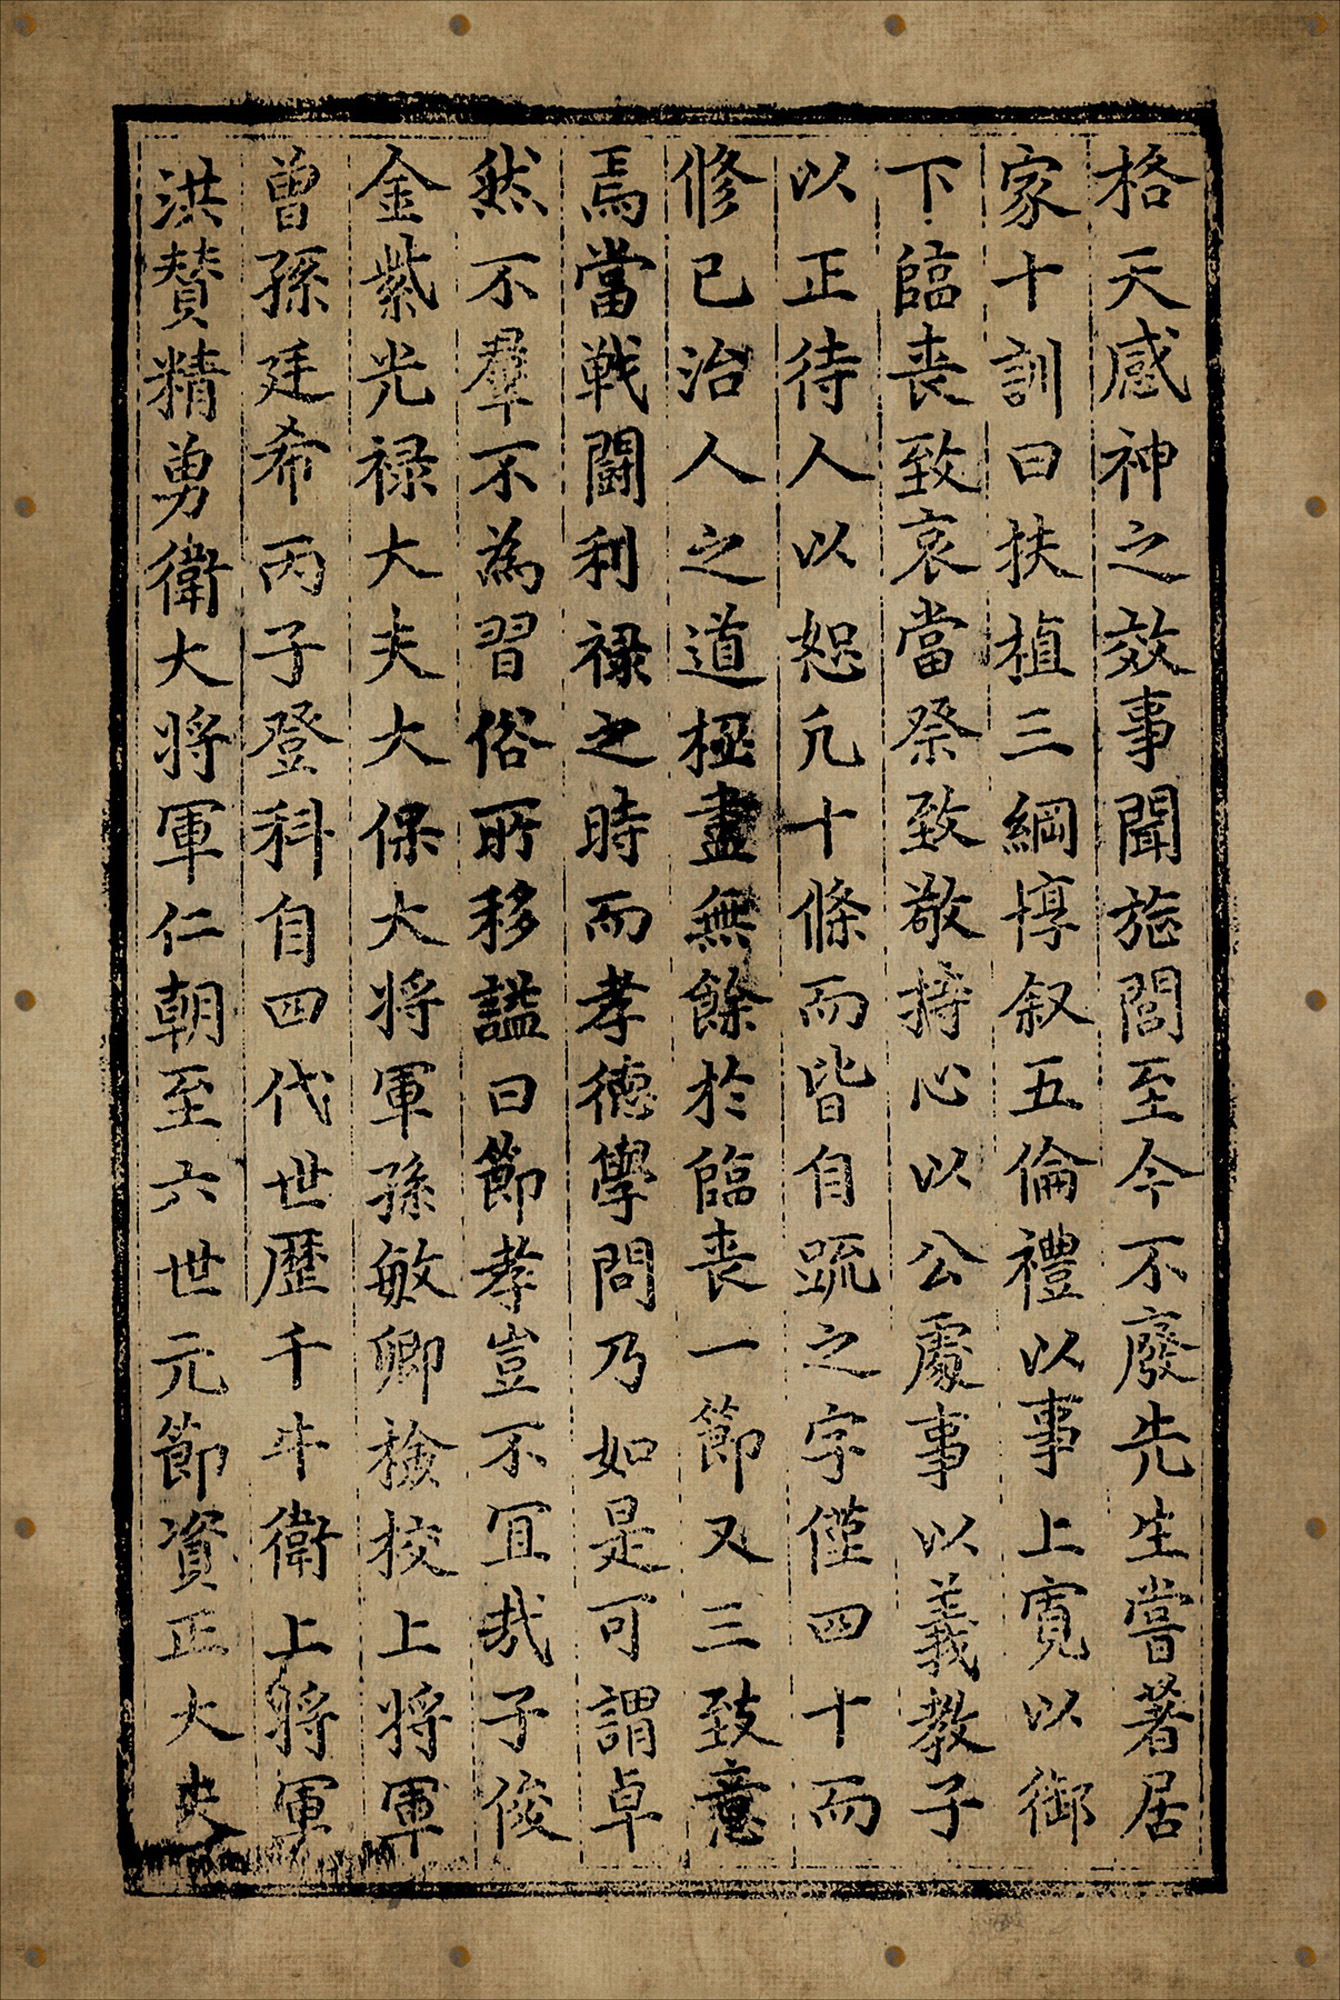 格天感神之效事聞旌閭至今不廢先生嘗著居
家十訓曰扶植三綱惇叙五倫禮以事上寬以御
下臨喪致哀當祭致敬持心以公處事以義教子
以正待人以恕凡十條而皆自䟽之字僅四十而
修己治人之道極盡無餘於臨喪一節又三致意
焉當戰鬪利禄之時而孝德學問乃如是可謂卓
然不羣不為習俗所移謚曰節孝豈不冝哉子俊
金紫光禄大夫大保大將軍孫敏卿檢校上將軍
曽孫廷希丙子登科自四代世歷千牛衛上將軍
洪賛精勇衛大將軍仁朝至六世元節資正大夫